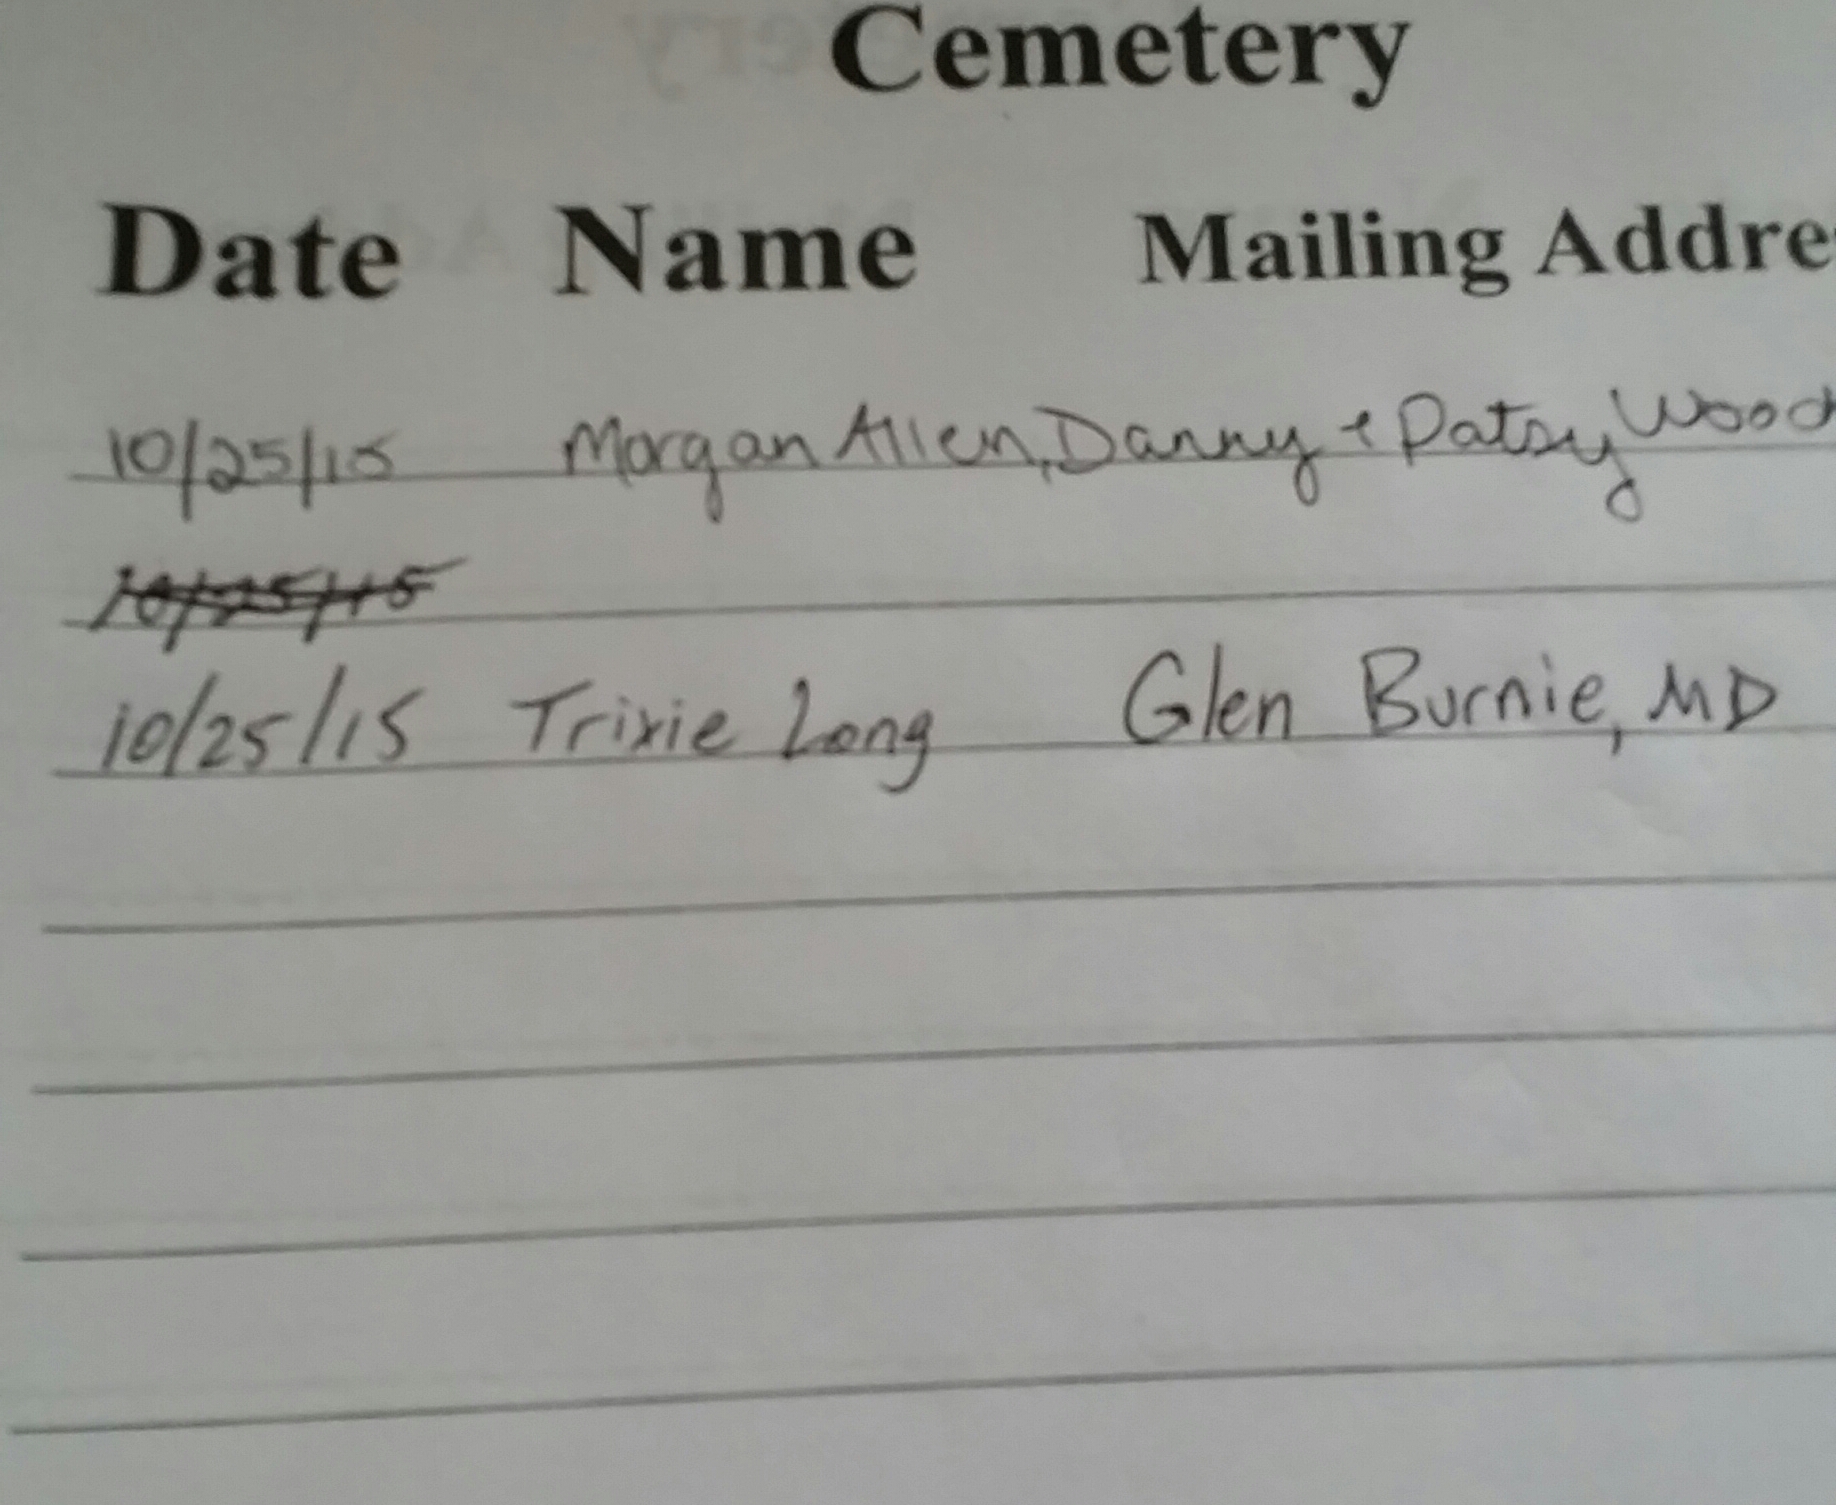 Cemetery
Date Name Mailing Addre
10/25/15 Morgan Allen, Danny + Patsy Wood
10/25/15
10/25/15 Trixie Long Glen Burnie, MD